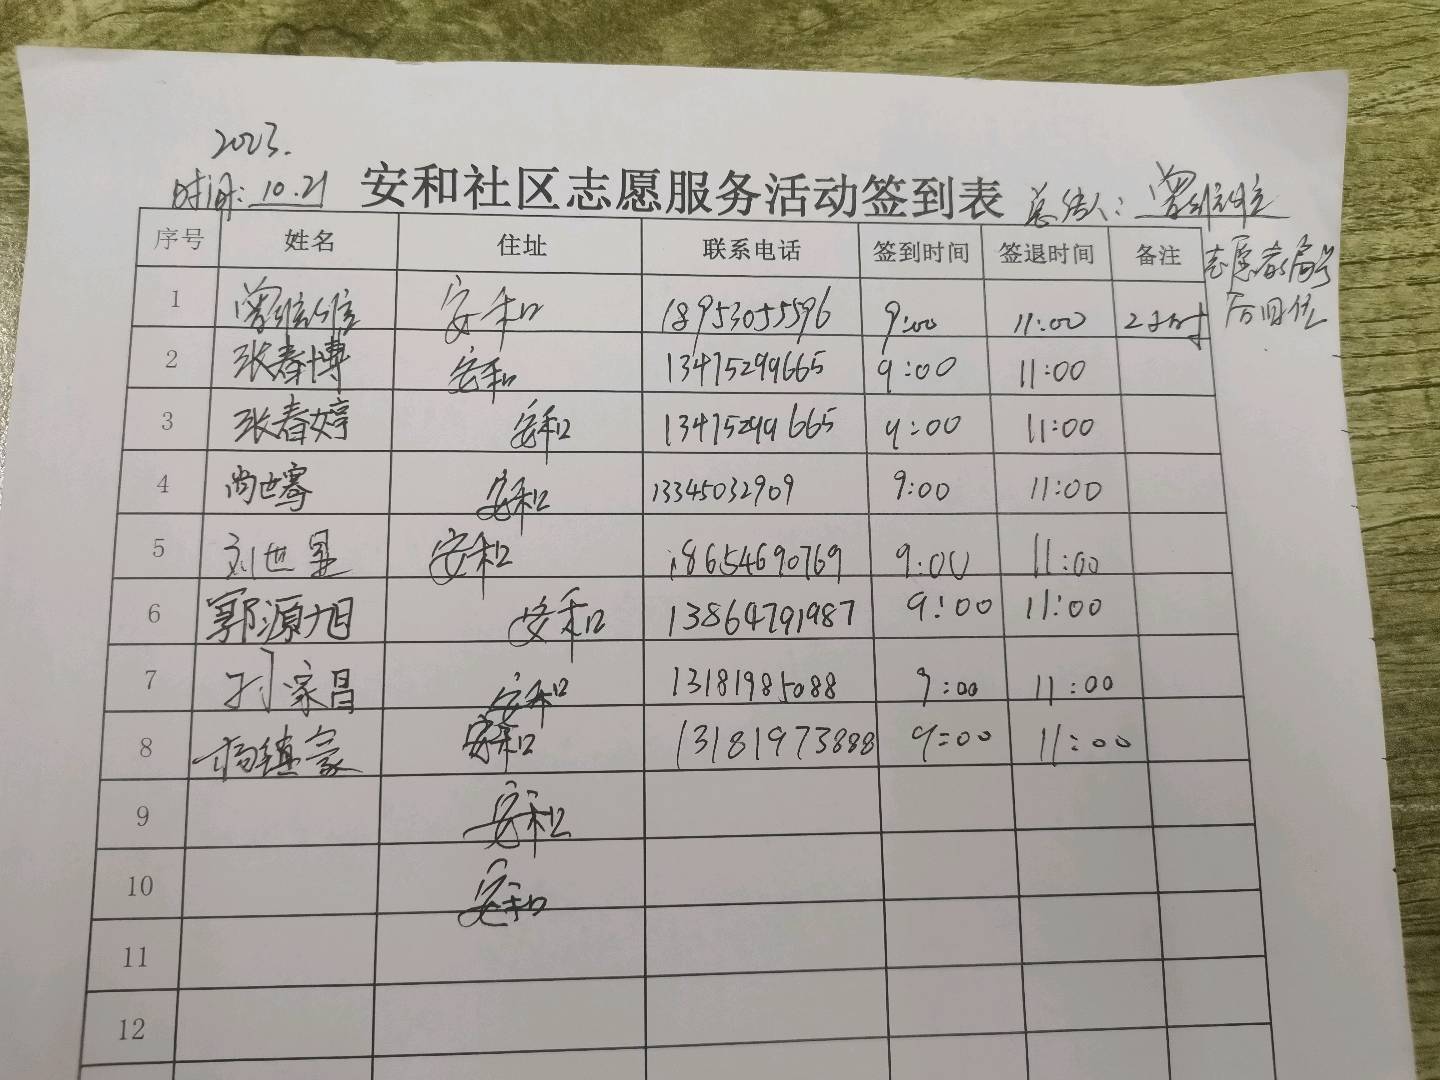 2023.
时间:10.21 安和社区志愿服务活动签到表 总结人:曾继维
序号 姓名 住址 联系电话 签到时间 签退时间 备注
志愿者编号
后四位
1 曾继维 安和 18953055596 9:00 11:00 2小时
2 张春博 安和 13475299665 9:00 11:00
3 张春婷 安和 13475299665 9:00 11:00
4 尚世骞 安和 13345032909 9:00 11:00
5 刘世 安和 18654690769 9:00 11:00
6 郭源旭 安和 13864791987 9:00 11:00
7 家昌 安和 13181985088 9:00 11:00
8 杨镇豪 安和 13181973888 9:00 11:00
9 安和
10 安和
11
12